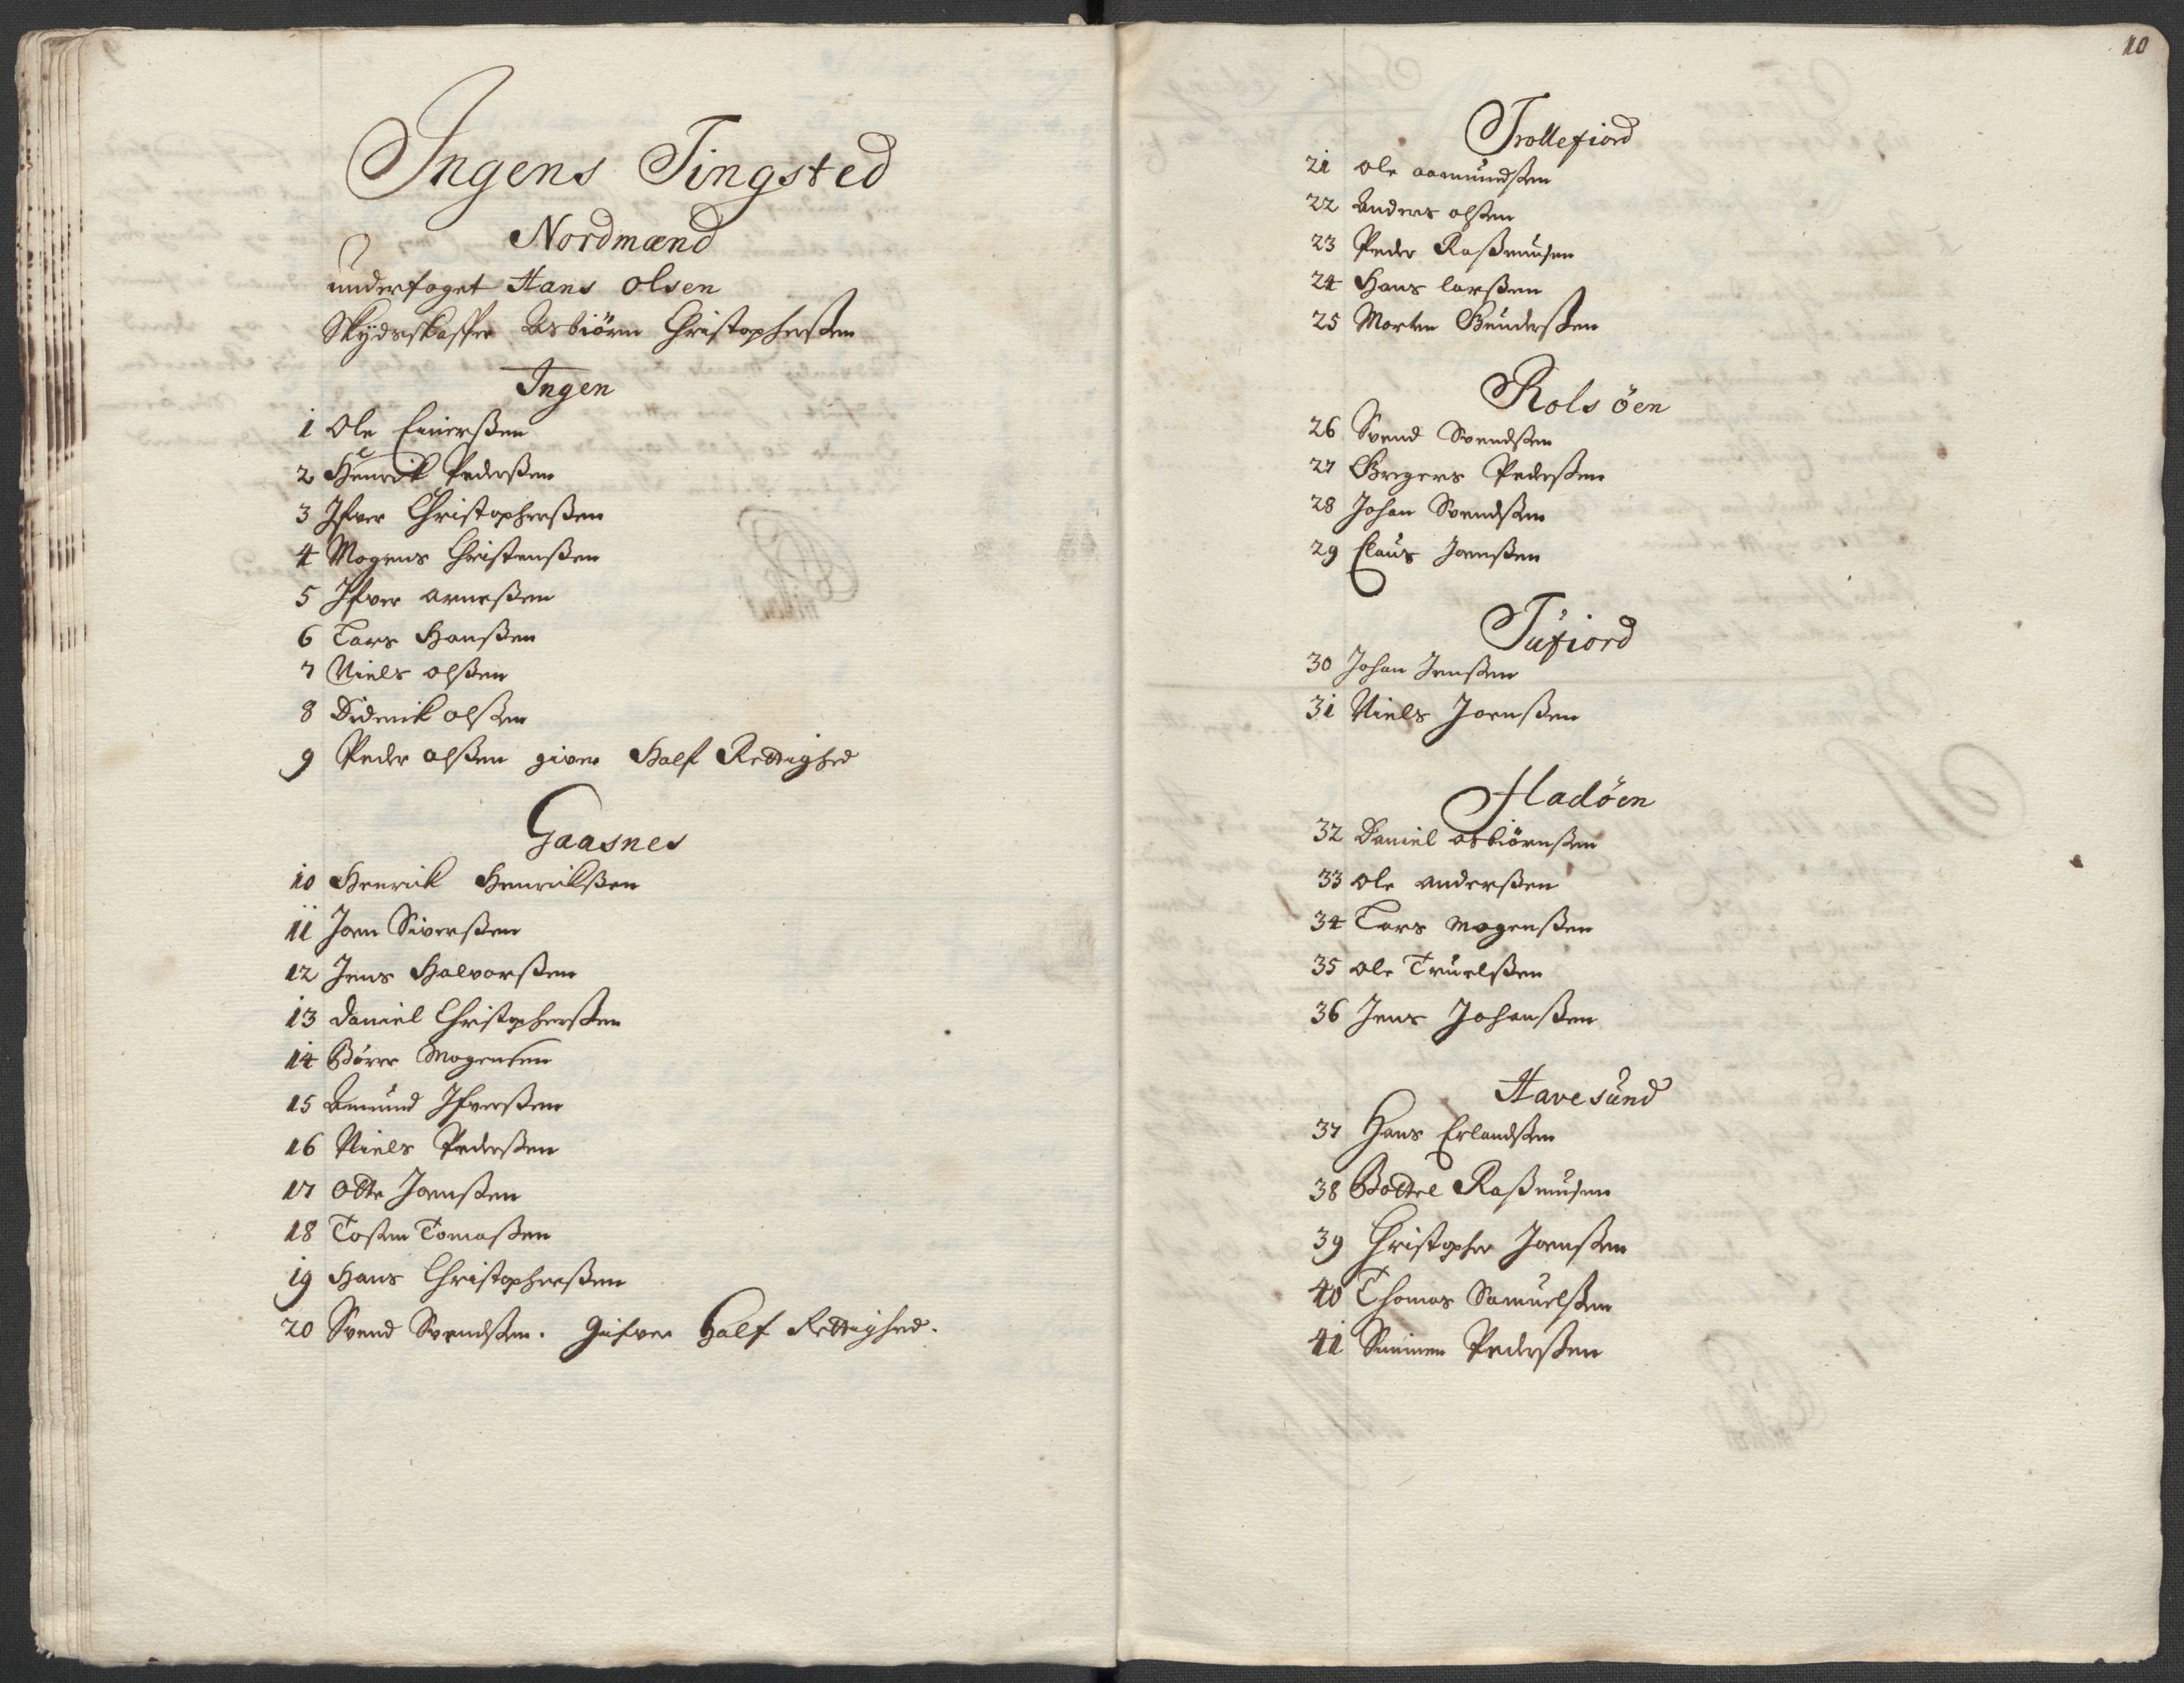 Ingens Tingsted
Nordmænd
underfoget Hans Olsen
Skydsskaffer Asbiörn Christopherßen
Ingen
1 Ole Einerßen
2 Henrik Pederßen
3 Ifver Christopherßen
4 Mogens Christenßen
5 Ifver Arneßen
6 Lars Hanßen
7 Niels olßen
8 Diderik olßen
9 Peder olßen giver Half Rettighed
Gaasnes
10 Henrick Henrickßen
11 Joen Siverßen
12 Jens Halvorßen
13 Daniel Christopherßen
14 Börre Mogensen
15 Amund Ifverßen
16 Niels Pederßen
17 Otte Joenßen
18 Tosten Tomaßen
19 Hans Christopherßen
20 Svend Svendßen. Gifver Half Rettighed.
10
Trollefiord
21 Ole aamundßen
22 Anders olßen
23 Peder Raßmusen
24 Hans larßen
25 Morten Gunderßen
Rolsöen
26 Svend Svendßen
27 Gregers Pederßen
28 Johan Svendßen
29 Claus Joenßen
Tufiord
30 Johan Jenßen
31 Niels Joenßen
Hadöen
32 Daniel asbiörnßen
33 Ole anderßen
34 Lars Mogenßen
35 Ole Truelßen
36 Jens Johanßen
Havesund
37 Hans Erlandßen
38 Bottel Raßmusen
39 Christopher Joenßen
40 Thomas Samuelßen
41 Simmen Pederßen